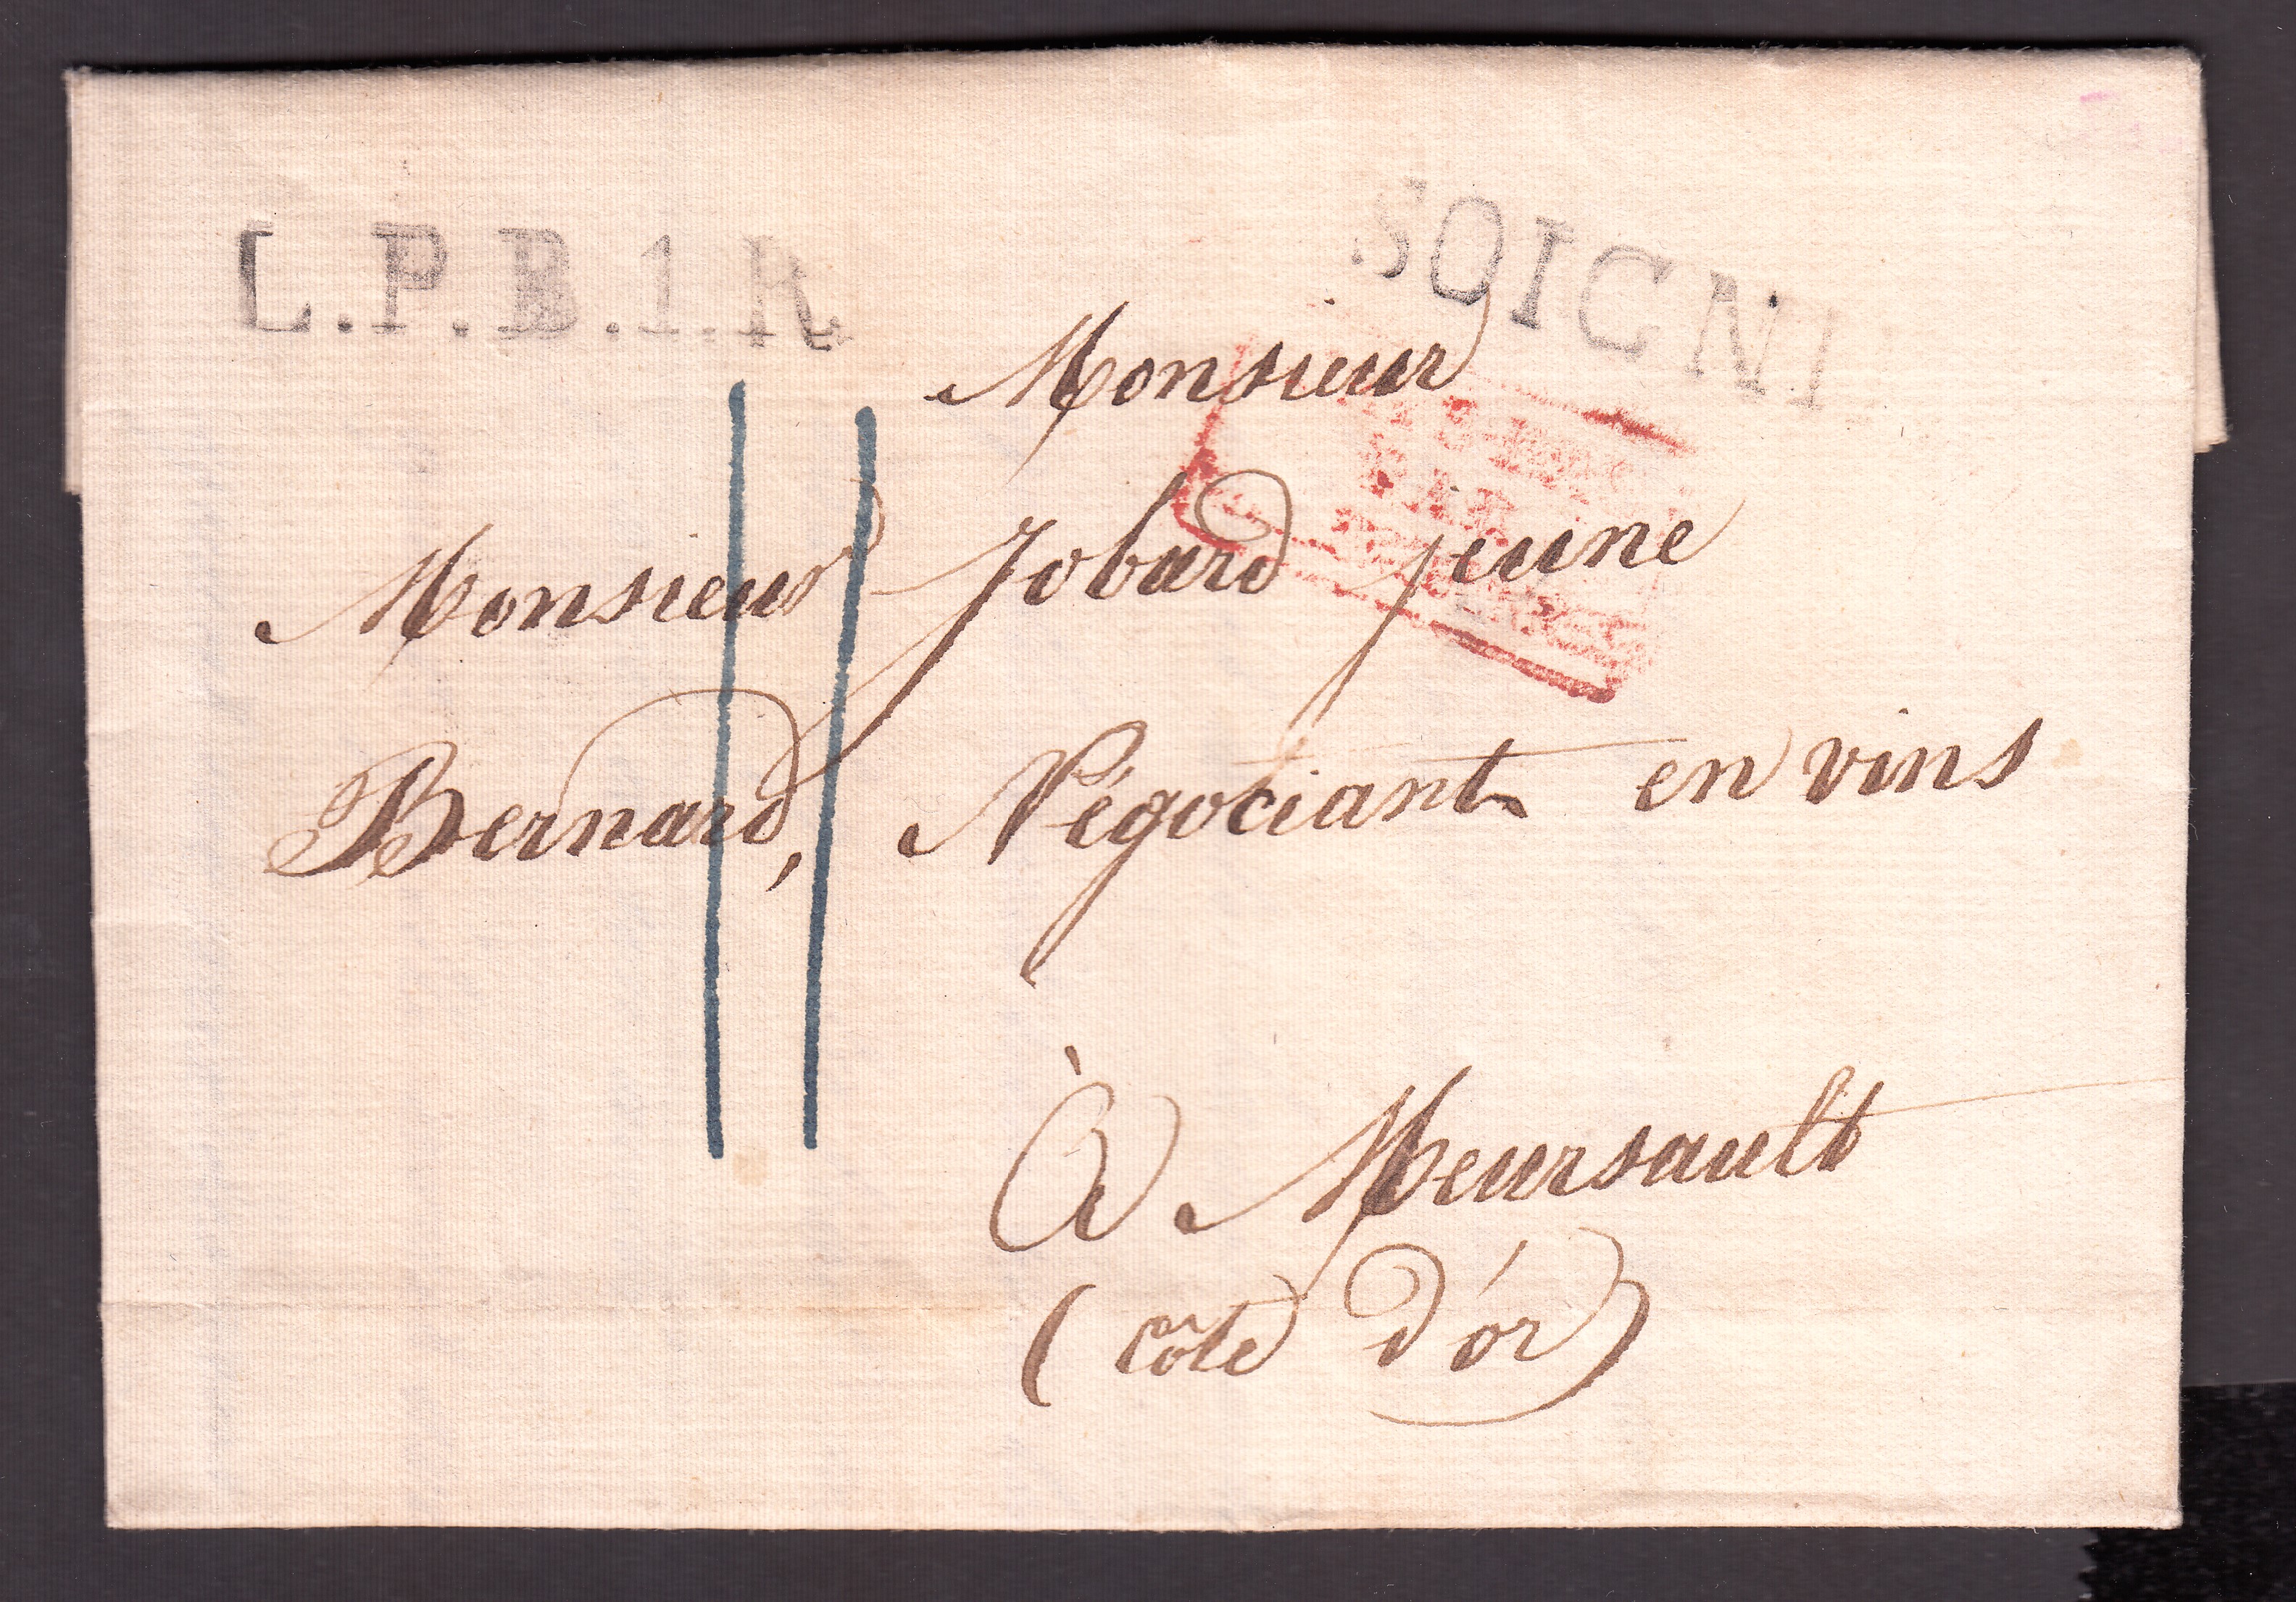 L.P.B.1.R.
SOIGNI
Monsieur
Monsieur Jobard jeune
Bernard, Négociant en vins
À Meursault
(côte d'or)